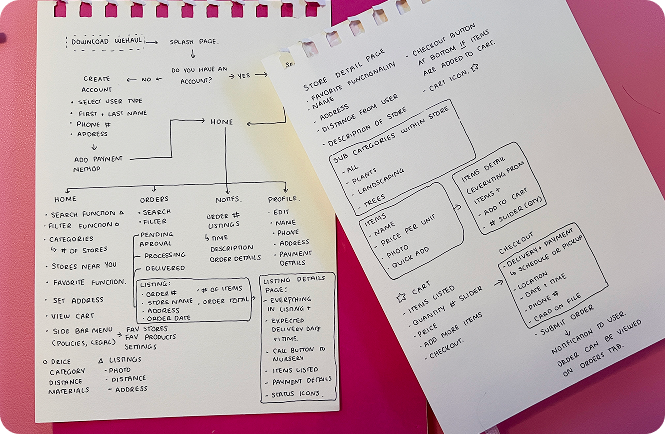 DOWNLOAD WEHAUL
SPLASH PAGE.
DO YOU HAVE AN
ACCOUNT?
NO
YES
CREATE
ACCOUNT
• SELECT USER TYPE
• FIRST + LAST NAME
• PHONE #
• ADDRESS
ADD PAYMENT
METHOD
HOME
HOME
• SEARCH FUNCTION
• FILTER FUNCTION
• CATEGORIES
↳ # OF STORES
• STORES NEAR YOU
• FAVORITE FUNCTION.
• SET ADDRESS
• VIEW CART
• SIDE BAR MENU
(POLICIES, LEGAL)
FAV STORES
FAV PRODUCTS
SETTINGS
O PRICE
CATEGORY
DISTANCE
MATERIALS
Δ LISTINGS
• PHOTO
• DISTANCE
- ADDRESS
ORDERS
• SEARCH
• FILTER
PENDING
APROVAL
PROCESSING
DELIVERED
LISTING:
• ORDER #
• STORE NAME
• ADDRESS
• ORDER DATE
• # OF ITEMS
. ORDER TOTAL
NOTFS.
ORDER #
LISTINGS
↳ TIME
DESCRIPTION
ORDER DETAILS
PROFILE.
• EDIT
• NAME
• PHONE
• ADDRESS
• PAYMENT
DETAILS
LISTING DETAILS
PAGE:
• EVERYTHING
IN LISTING +
• EXPECTED
DELIVERY DATE
+ TIME.
• CALL BUTTON TO
NURSERY
• ITEMS LISTED
• PAYMENT DETAILS
• STATUS ICONS.
STORE DETAIL PAGE
- FAVORITE FUNCTIONALITY
- NAME
- ADDRESS
- DISTANCE FROM USER
- DESCRIPTION OF STORE
- CHECKOUT BUTTON
AT BOTTOM IF ITEMS
ARE ADDED TO CART.
- CART ICON. ☆
SUB CATEGORIES WITHIN STORE
- ALL
- PLANTS
- LANDSCAPING
- TREES
ITEMS
- NAME
- PRICE PER UNIT
- PHOTO
QUICK ADD
ITEMS DETAIL
LEVERATING FROM
ITEMS +
- ADD TO CART
- # SLIDER (QTY)
☆ CART
- ITEMS LISTED
- QUANTITY # SLIDER
- PRICE
- ADD MORE ITEMS
- CHECKOUT.
CHECKOUT
- DELIVERY + PAYMENT
↳ SCHEDULE OR PICKUP
- LOCATION
- DATE + TIME
- PHONE #
- CARD ON FILE
- SUBMIT ORDER
NOTIFICATION TO USER.
ORDER CAN BE VIEWED
ON ORDERS TAB.